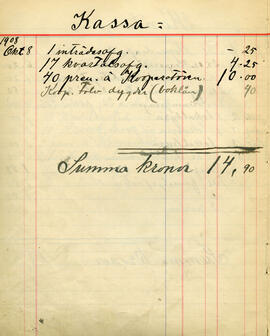 Kassa =
1908
Okt 8 1 inträdesafg. - 25
17 kvartalsafg. 4-25
40 pren. à Kooperatören 10.00
Koop. tolv dygder (boklån) 40
Summa kronor 14,90